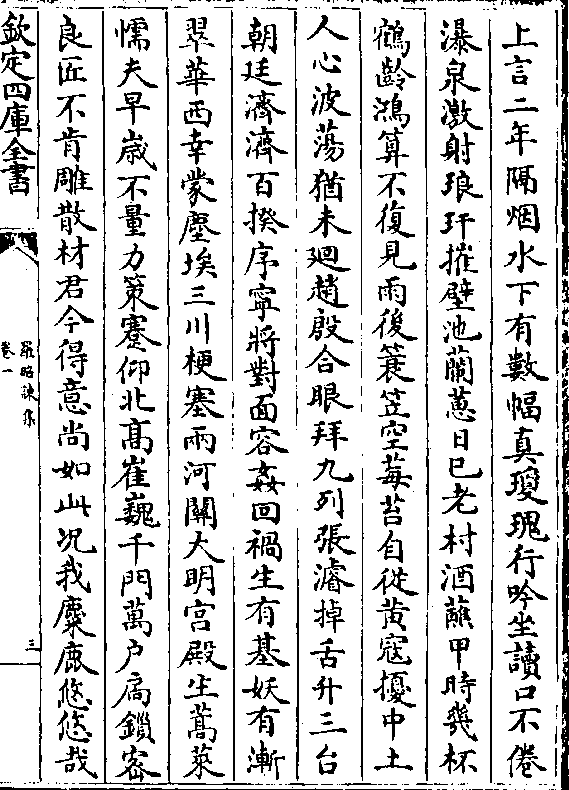 上言二年隔烟水下有數幅真瓊瑰行吟坐讀口不倦
瀑泉激射琅玕摧壁池蘭蕙日已老村酒蘸甲時幾杯
鶴齡鴻算不復見雨後蓑笠空莓苔自從黄寇擾中土
人心波蕩猶未廻趙殷合眼拜九列張濬掉舌升三台
朝廷濟濟百揆序寧將對面容姦回禍生有基妖有漸
翠華西幸蒙塵埃三川梗塞兩河闗大明宫殿生蒿萊
懦夫早歲不量力策蹇仰北髙崔巍千門萬户扃鎖宻
良匠不肯雕散材君今得意尚如此况我麋鹿悠悠哉
欽定四庫全書
羅昭諫集
卷一
三